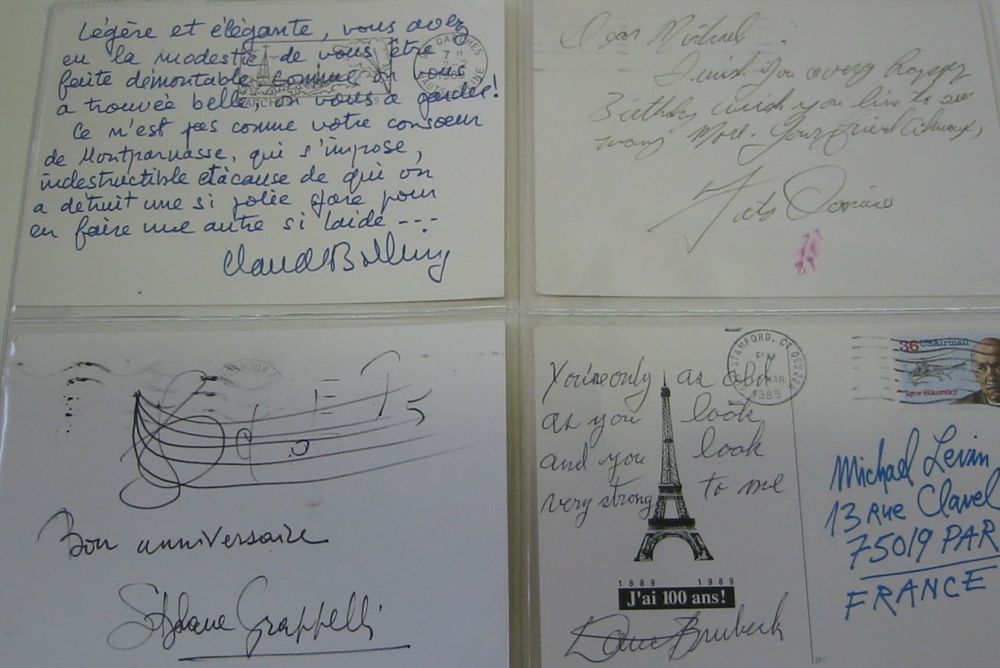 Légère et élégante, vous avez
eu la modestie de vous être
faite démontable. Comme on vous
a trouvée belle, on vous a gardée!
Ce n'est pas comme votre consoeur
de Montparnasse, qui s'impose,
indestructible et à cause de qui on
a détruit une si jolie gare pour
en faire une autre si laide ---
Claude Bolling
GARCHES
Dear Michael
I wish you a very happy
Birthday wish you live to see
many More. Your friend Always,
Fats Domino
5
Bon anniversaire
Stéphane Grappelli
You're only as old
as you look
and you look
very strong to me
1889 1989
J'ai 100 ans!
Dave Brubeck
STAMFORD, CT
PM
MAR
1989
36 USAirmail
Igor Sikorsky
Michael Levin
13 Rue Clavel
75019 PAR
FRANCE